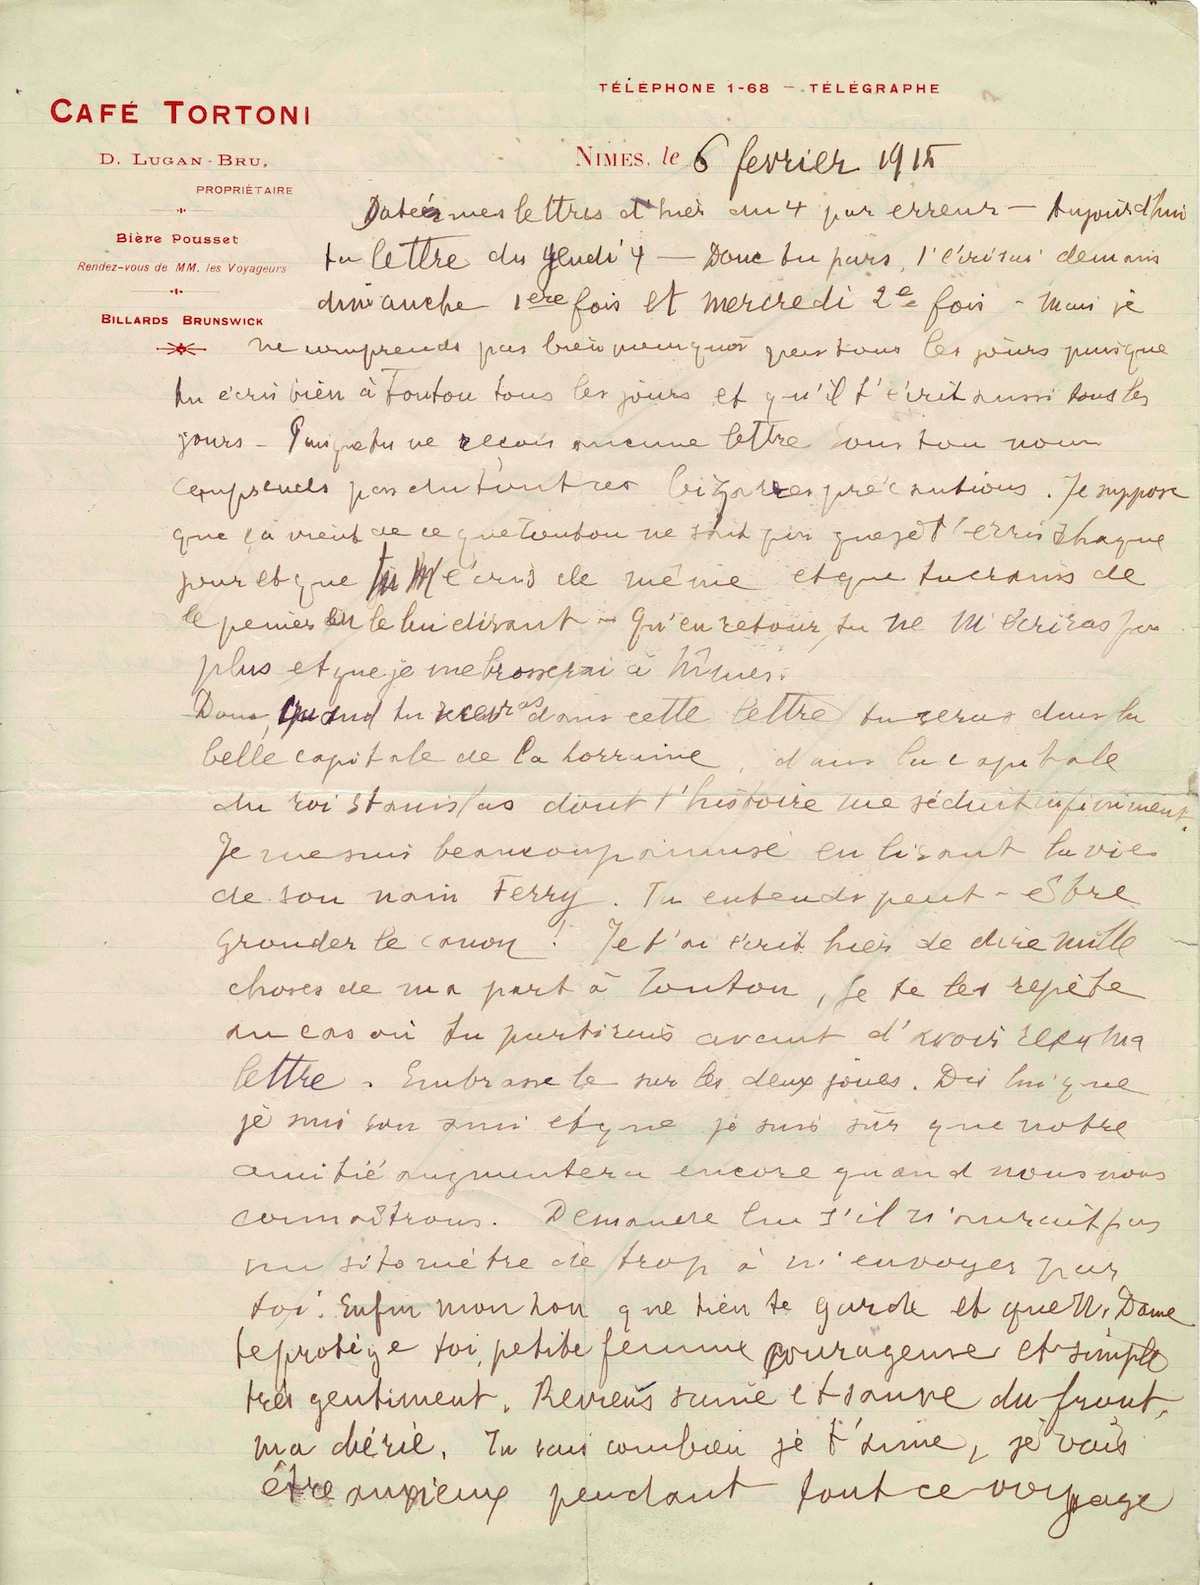 TÉLÉPHONE 1-68 — TÉLÉGRAPHE
CAFÉ TORTONI
D. LUGAN-BRU,
PROPRIÉTAIRE
Bière Pousset
Rendez-vous de MM. les Voyageurs
BILLARDS BRUNSWICK
NIMES, le 6 fevrier 1915
Datées mes lettres d'hier du 4 par erreur — Aujourd'hui
ta lettre du jeudi 4 — Donc tu pars, t'écrirai demain
dimanche 1ere fois et mercredi 2e fois - Mais je
ne comprends pas bien pourquoi pas tous les jours puisque
tu écris bien à Toutou tous les jours et qu'il t'écrit aussi tous les
jours - Puisque tu ne reçois aucune lettre sous ton nom
comprends pas du tout ces bizarres précautions. Je suppose
que çà vient de ce que Toutou ne sait pas que je t'écris chaque
jour et que tu M'écris de même et que tu crains de
le peiner en le lui disant - Qu'en retour, tu ne M'écriras pas
plus et que je me brosserai à Nîmes.
Donc, quand tu recevras cette lettre tu seras dans la
belle capitale de la Lorraine, dans la capitale
du roi Stanislas dont l'histoire me séduit infiniment.
Je me suis beaucoup amusé en lisant la vie
de son nain Ferry. Tu entends peut-être
gronder le canon! Je t'ai écrit hier de dire mille
choses de ma part à Toutou, je te les repète
au cas où tu partirais avant d'avoir reçu ma
lettre. Embrasse le sur les deux joues. Dis lui que
je suis son ami et que je suis sûr que notre
amitié augmentera encore quand nous nous
connaîtrons. Demande lui s'il n'aurait pas
un sitomètre de trop à m'envoyer par
toi. Enfin mon Lou que rien te garde et que N. Dame
te protège toi, petite femme courageuse et simple
très gentiment. Reviens saine et sauve du front,
ma chérie. Tu sais combien je t'aime, je vais
être anxieux pendant tout ce voyage